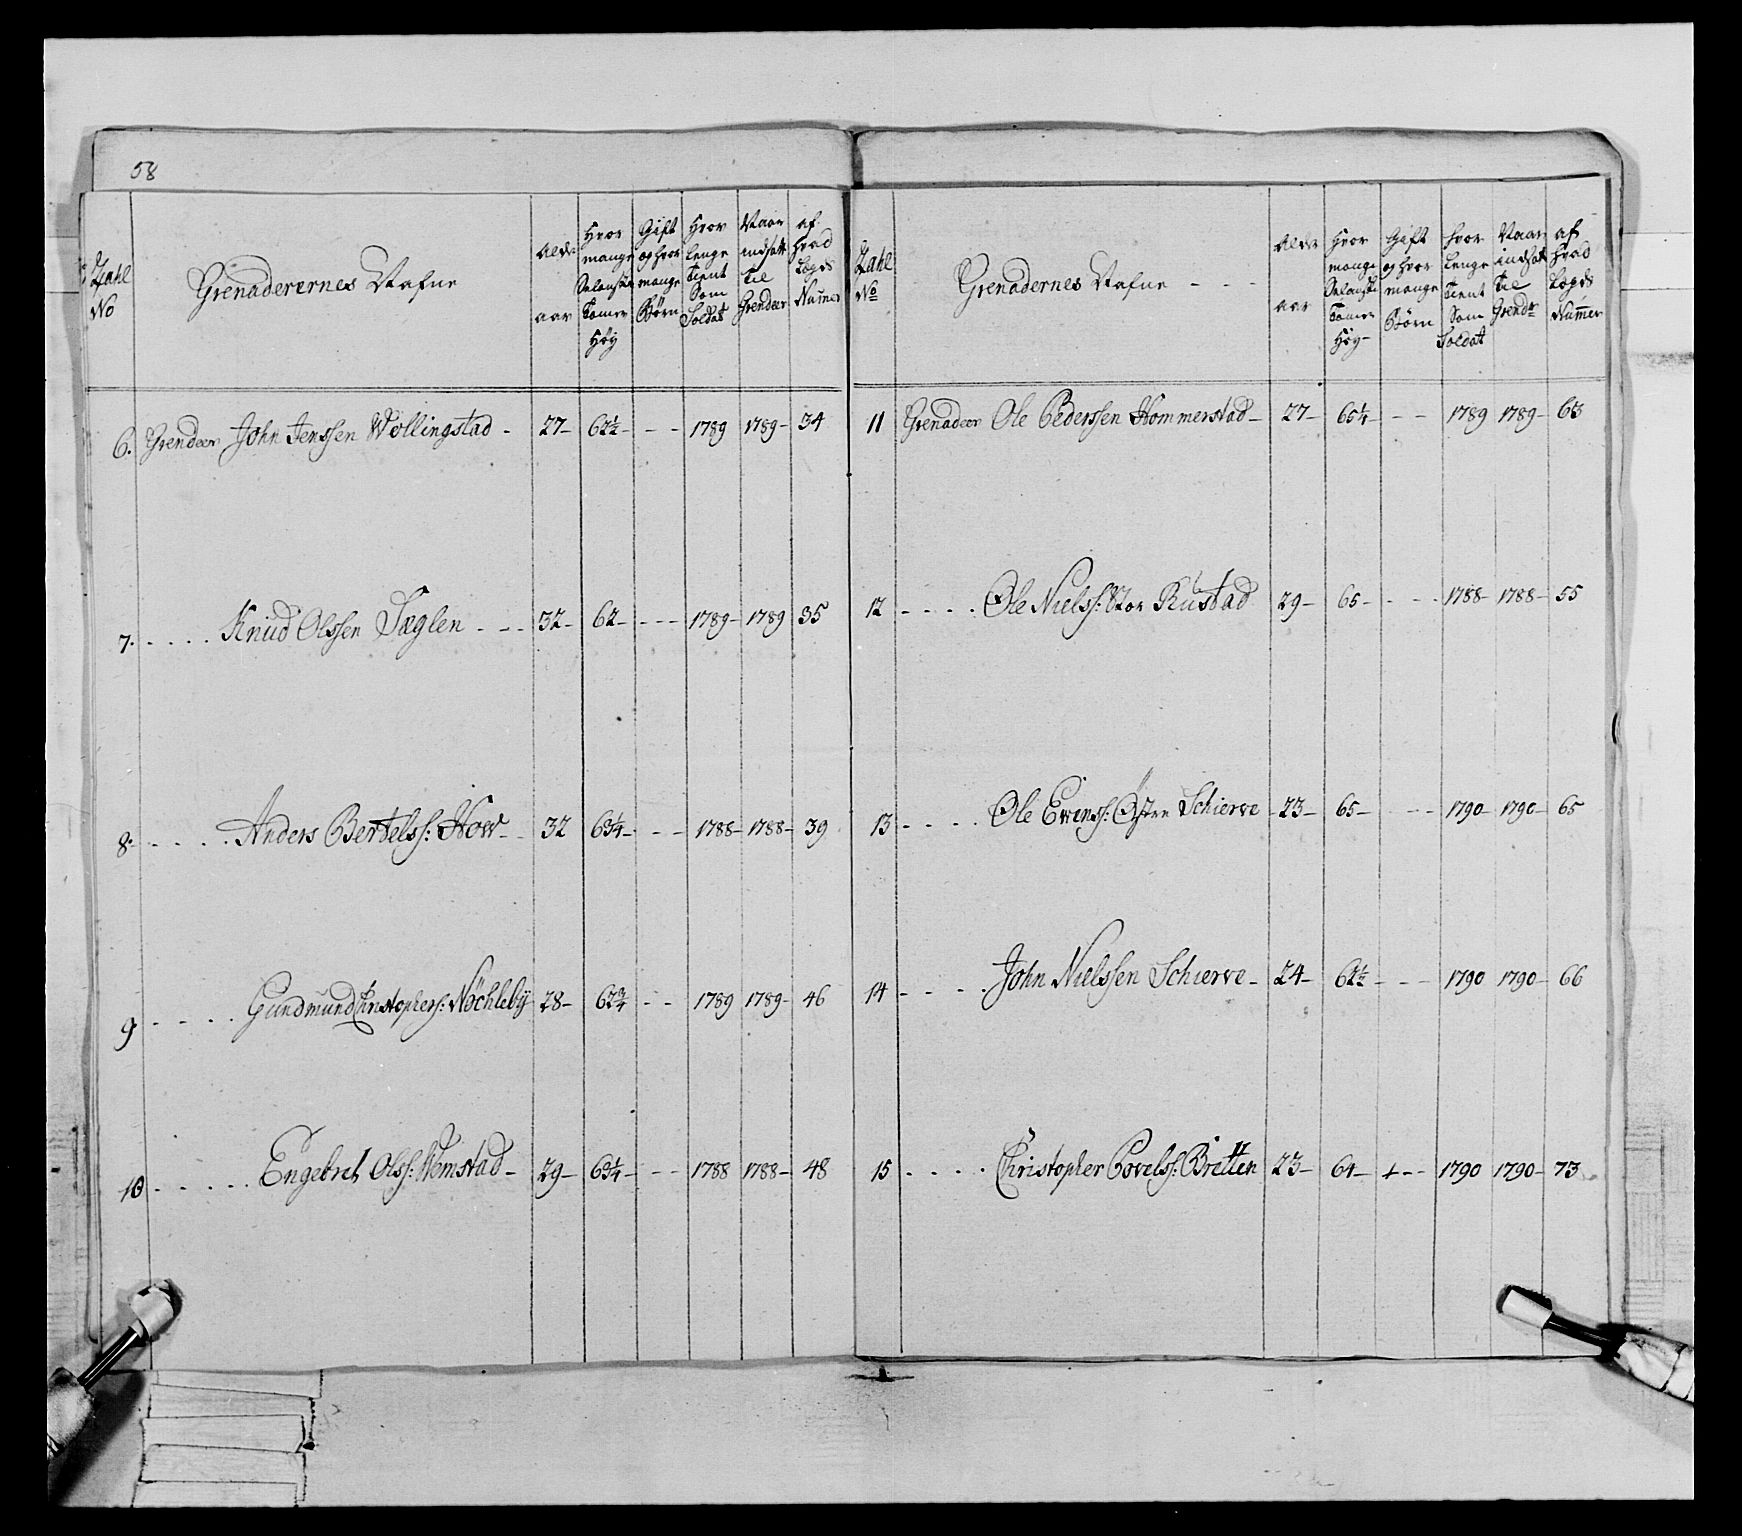 58
Zahl No
Grenaderernes Nafne
Alder aar
Hvor mange Selanske Tomer Høy
Gift og hvor mange Børn
Hvor lenge Tient Som Soldat
Naar indsatt til Grendeer
af hvad Legds Numer
6. Grendeer John Jenssen Wollingstad - 27- 62½- - - 1789 1789- 34
7. - - - - Knud Olssen Sæglen - - - 32- 62- - - - 1789- 1789 35
8- - - - - - Anders Bertelss: How- - 32 63¼- - - 1788- 1788- 39
9 - - - - Gundmund Christophers: Nöchlebÿ 28- 62¾ - - 1789 1789- 46
10 - - - - - Engebret Olss: Hemstad- 29- 63¼- - - 1788 1788- 48
Zahl No
Grenadernes Nafne - - -
Alder aar
Hvor mange Selanske Tomer Høy-
Gift og hvor mange Børn
hvor lenge Tient Som Soldat
Naar indsatt til Grendr
af hvad Legds Numer
11 Grenadeer Ole Pederssen Hommerstad- 27- 65¼- - - 1789 1789- 63
12 - - - - Ole Nielss: Stor Rustad 29- 65- - - - 1788- 1788- 55
13 - - - - Ole Ewenss: Østre Schierve 23- 65- - - - 1790- 1790- 65
14 - - - - John Nielssen Schierve- 24- 62½- - - - 1790 1790- 66
15 - - - - Christopher Povelss: Bretten 23- 64- + - - 1790 1790- 73